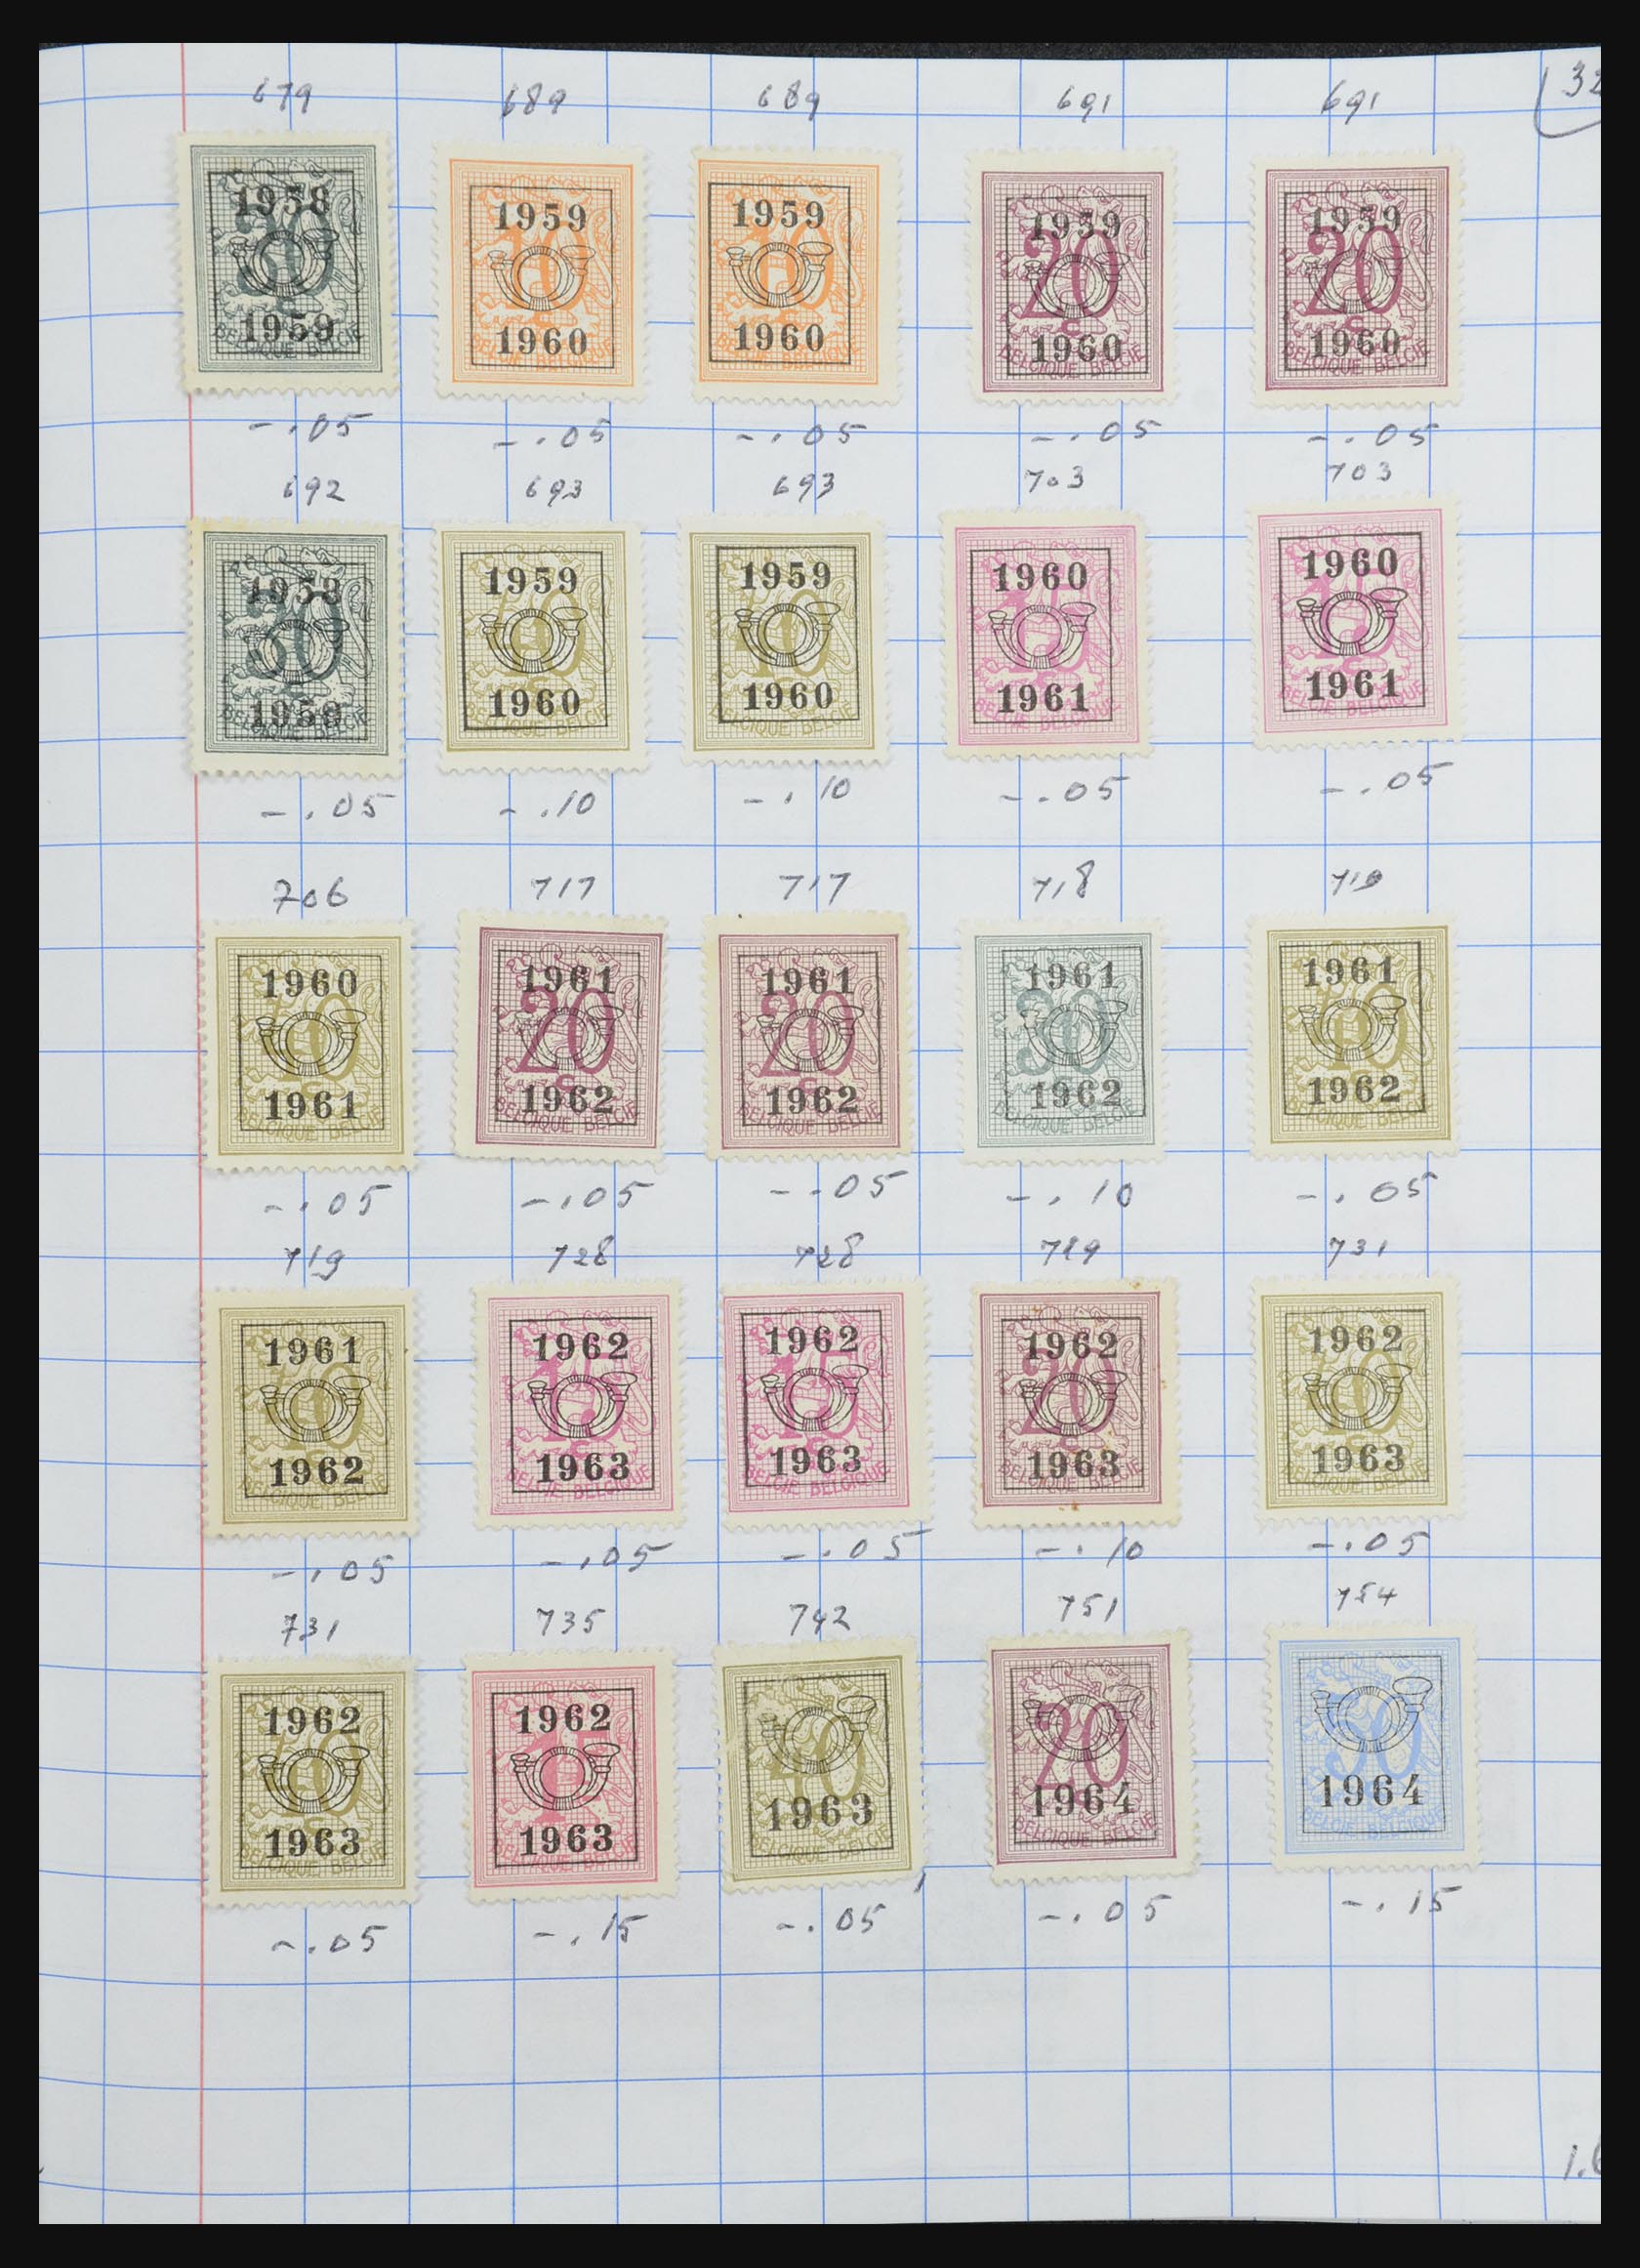 679 689 689 691 691 (32
1958 1959 1959 1959 1959
30 10 10 20 20
1959 1960 1960 1960 1960
BELGIQUE BELGIE BELGIQUE BELGIE BELGIQUE BELGIE
-.05 -.05 -.05 -.05 -.05
692 693 693 703 703
1958 1959 1959 1960 1960
30 40 40 15 15
1959 1960 1960 1961 1961
BELGIQUE BEL BELGIQUE BELGIE BELGIQUE BELGIE BELGIE BELGIQUE BELGIE BELGIQUE
-.05 -.10 -.10 -.05 -.05
706 717 717 718 719
1960 1961 1961 1961 1961
40 20 20 30 40
1961 1962 1962 1962 1962
BELGIQUE BELGIE BELGIQUE BELGIE BELGIQUE BELGIE
-.05 -.05 -.05 -.10 -.05
719 728 728 729 731
1961 1962 1962 1962 1962
40 15 15 20 40
1962 1963 1963 1963 1963
BELGIQUE BEL BELGIE BELGIQUE BELGIE BELGIQUE BELGIQUE BELGIE BELGIQUE BELGIE
-.05 -.05 -.05 -.10 -.05
731 735 742 751 754
1962 1962
40 1F 40 20 50
1963 1963 1963 1964 1964
BELGIQUE BELGIE BELGIQUE BELGIE BELGIQUE BELGIE BELGIE BELGIQUE
-.05 -.15 -.05 -.05 -.15
1.6